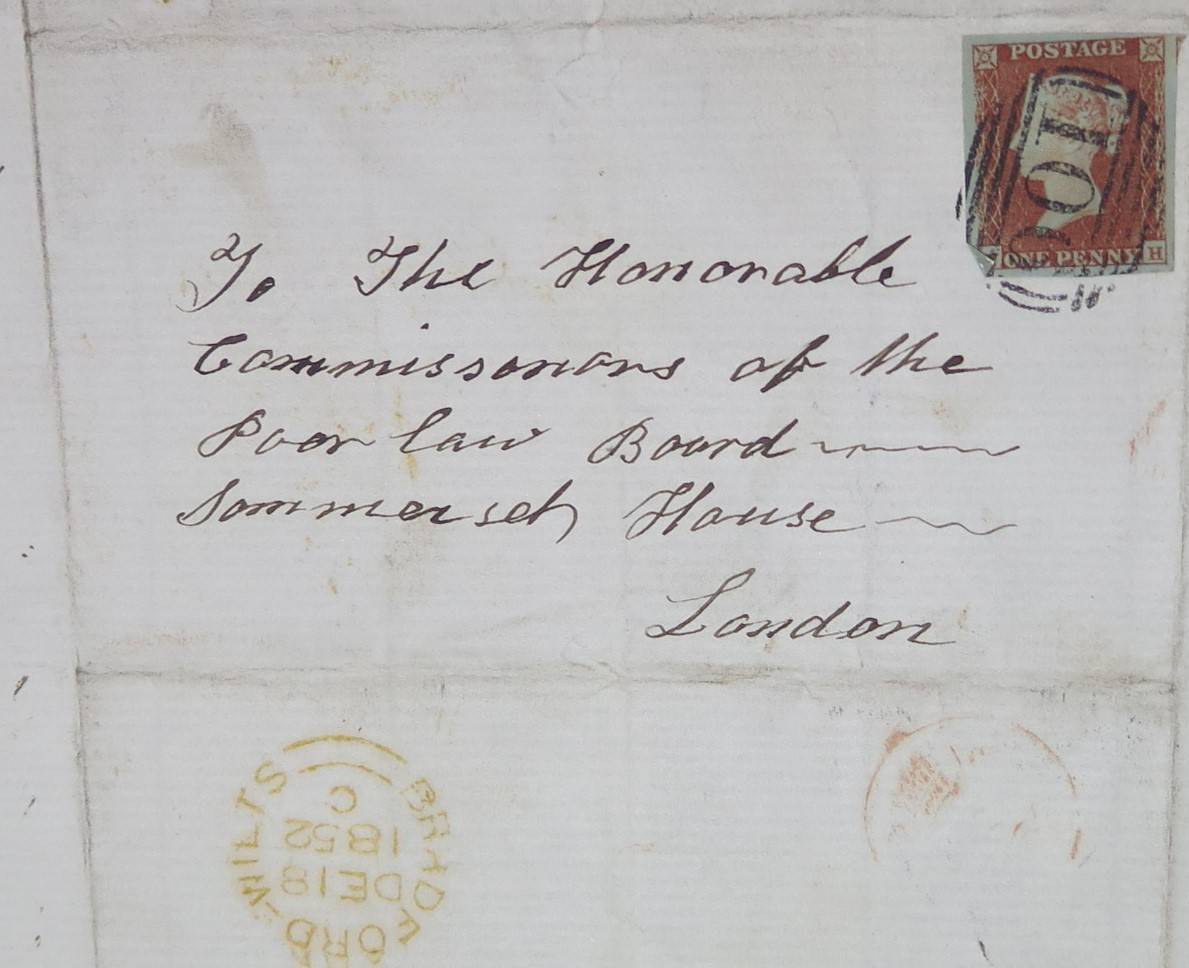 POSTAGE
101
ONE PENNY H
To The Honorable
Commissonors of the
Poor law Board
Sommerset House
London
BRADFORD-WILTS
C
1852
DE 18